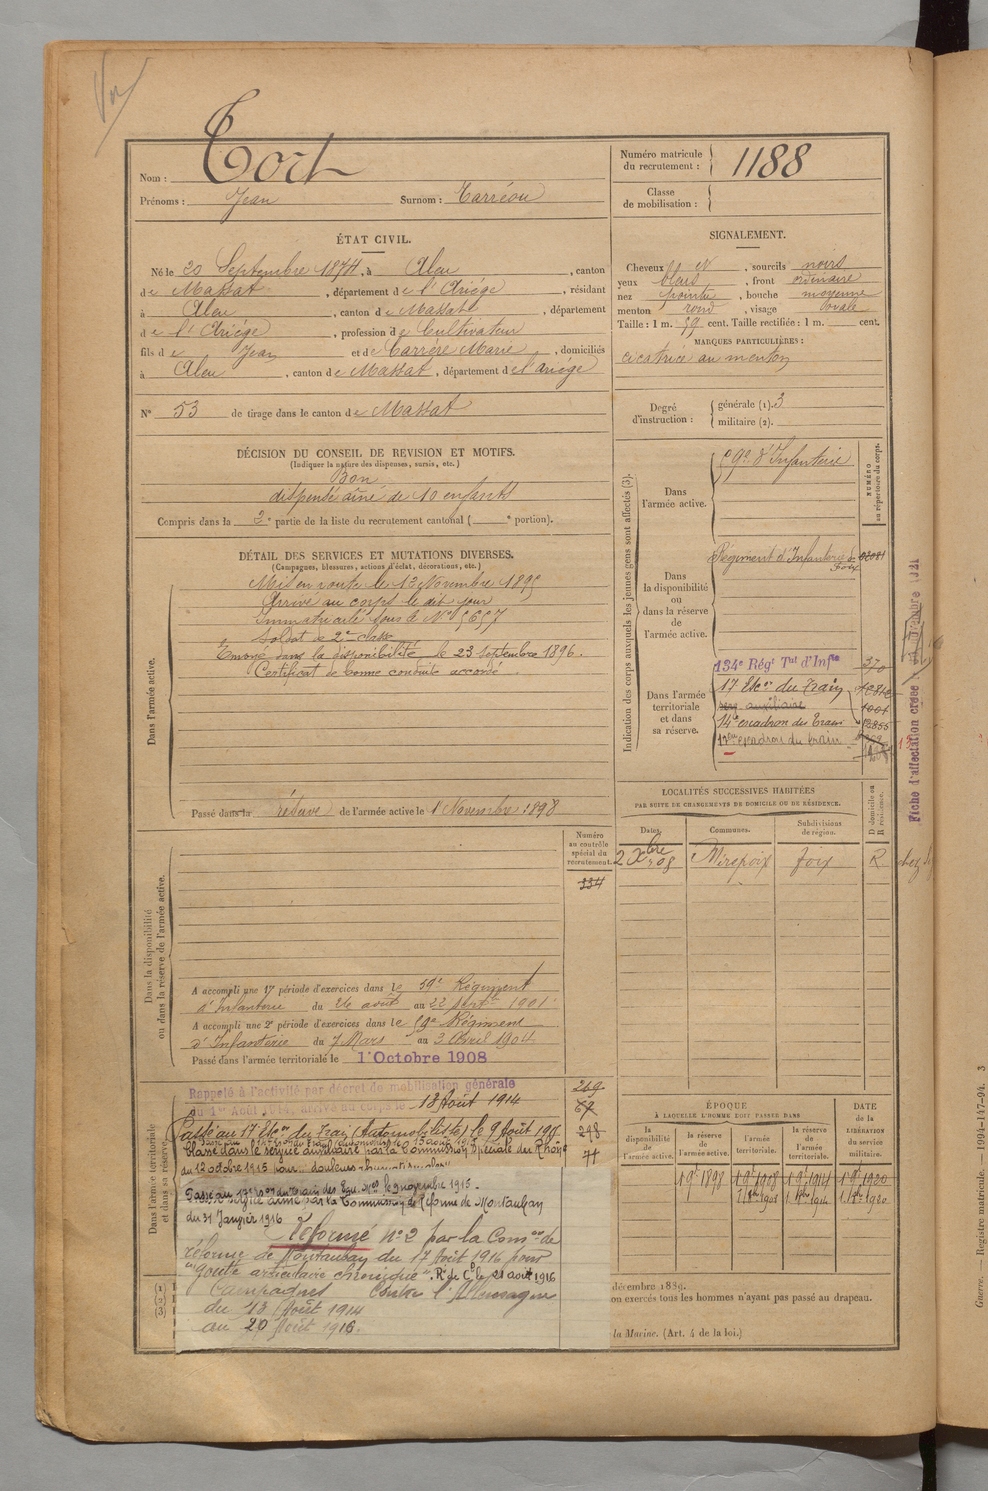 Nom : Tort
Prénoms : Jean Surnom : Carréou
Numéro matricule du recrutement : 1188
Classe de mobilisation :
ÉTAT CIVIL.
Né le 20 Septembre 1874, à Aleu, canton
de Massat, département de l'Ariège, résidant
à Aleu, canton de Massat, département
de l'Ariège, profession de Cultivateur
fils de Jean et de Carrère Marie, domiciliés
à Aleu, canton de Massat, département de l'ariège
N° 53 de tirage dans le canton de Massat
SIGNALEMENT.
Cheveux et, sourcils noirs
yeux, front ordinaire
nez pointu, bouche moyenne
menton rond, visage ovale
Taille : 1 m. 59 cent. Taille rectifiée : 1 m. cent.
MARQUES PARTICULIÈRES :
cicatrice au menton
Degré d'instruction : générale (1). 3
militaire (2).
DÉCISION DU CONSEIL DE REVISION ET MOTIFS.
(Indiquer la nature des dispenses, sursis, etc.)
Bon
dispensé aîné de 10 enfants
Compris dans la 2e partie de la liste du recrutement cantonal ( e portion).
DÉTAIL DES SERVICES ET MUTATIONS DIVERSES.
(Campagnes, blessures, actions d'éclat, décorations, etc.)
Dans l'armée active.
Mis en route le 13 Novembre 1895
Arrivé au corps le dit jour
Immatriculé sous le N° 5657
Soldat de 2me classe
Envoyé dans la disponibilité le 23 septembre 1896.
Certificat de bonne conduite accordé
Passé dans la réserve de l'armée active le 1 Novembre 1898
Indication des corps auxquels les jeunes gens sont affectés (3).
NUMÉRO au répertoire du corps.
Dans l'armée active.
59e d'Infanterie
Dans la disponibilité ou dans la réserve de l'armée active.
Régiment d'Infanterie de Foix
Dans l'armée territoriale et dans sa réserve.
134e Régt Tal d'Infie 370
17 Escon du Train
serv auxiliaire
14e escadron du Train
17eme escadron du train
Fiche d'affectation créée
LOCALITÉS SUCCESSIVES HABITÉES
PAR SUITE DE CHANGEMENTS DE DOMICILE OU DE RÉSIDENCE.
Dates. Communes. Subdivisions de région. D domicile ou R résidence.
2 Xbre 1908 Mirepoix Foix R
Numéro au contrôle spécial du recrutement.
334
Dans la disponibilité ou dans la réserve de l'armée active.
A accompli une 1re période d'exercices dans le 59e Régiment
d'Infanterie du 26 août au 22 septbre 1901
A accompli une 2e période d'exercices dans le 59e Régiment
d'Infanterie du 7 Mars au 3 Avril 1904
Passé dans l'armée territoriale le 1 Octobre 1908
Dans l'armée territoriale et dans sa réserve.
Rappelé à l'activité par décret de mobilisation générale
du 1er Août 1914, arrivé au corps le 13 Août 1914
269
67
248
77
Passé au 17 Escon du Train (Automobiliste) le 9 Août 1915
Classé dans le service auxiliaire par la Commission Spéciale du Rhône
du 12 octobre 1915 pour "douleurs rhumatismales"
Passé au 17e Son du train des Equ. Mres le 9 novembre 1915.
par la Commission de Réforme de Montauban
du 31 Janvier 1916
Réformé n° 2 par la Comon de
réforme de Montauban du 17 Août 1916 pour
"goutte articulaire chronique". R. de C. le 21 août 1916
Campagnes Contre l'Allemagne
du 13 Août 1914
au 20 Août 1916.
ÉPOQUE
À LAQUELLE L'HOMME DOIT PASSER DANS
la disponibilité de l'armée active. la réserve de l'armée active. l'armée territoriale. la réserve de l'armée territoriale.
DATE de la LIBÉRATION du service militaire.
1 9e 1898 1 9e 1908 1 9e 1914 1 9e 1920
1 8bre 1908 1 8bre 1914 1 8bre 1920
(1)
(2)
(3)
décembre 1889.
ou exercés tous les hommes n'ayant pas passé au drapeau.
la Marine. (Art. 4 de la loi.)
Guerre. — Registre matricule. — 1994-147-94. 3